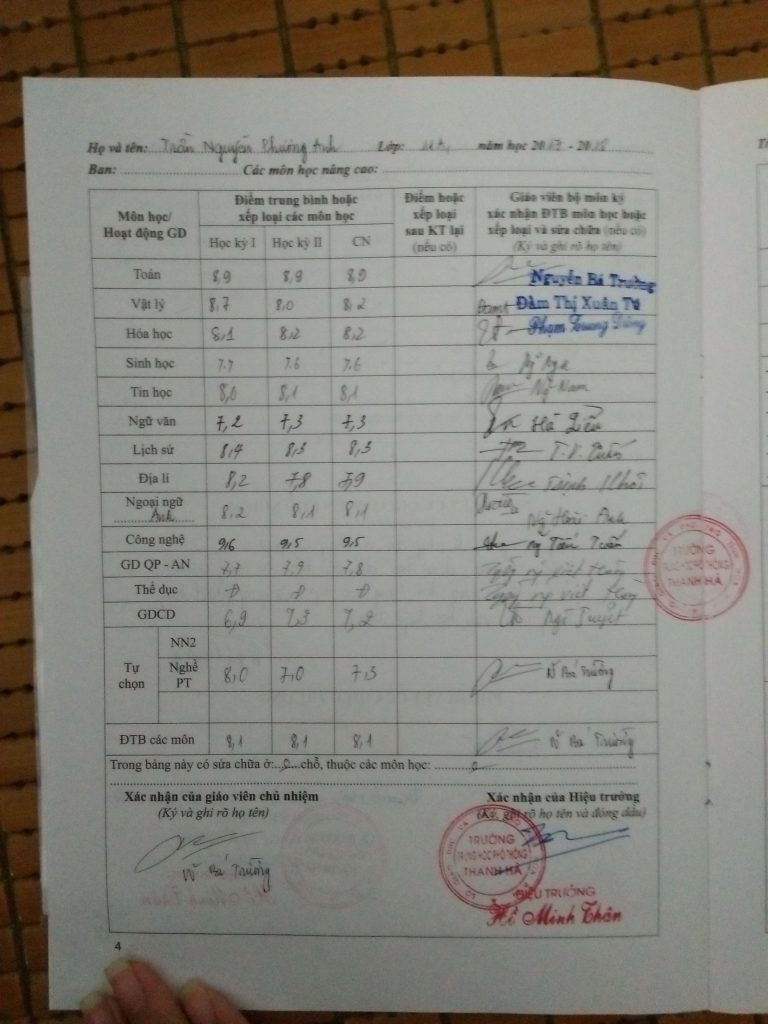 Họ và tên: Trần Nguyễn Phương Anh Lớp: năm học 2017 - 2018
Ban: Các môn học nâng cao:
Môn học/ Hoạt động GD
Điểm trung bình hoặc xếp loại các môn học
Điểm hoặc xếp loại sau KT lại (nếu có)
Giáo viên bộ môn ký xác nhận ĐTB môn học hoặc xếp loại và sửa chữa (nếu có) (Ký và ghi rõ họ tên)
Học kỳ I Học kỳ II CN
Toán 8,9 8,9 8,9 Nguyễn Bá Trường
Vật lý 8,7 8,0 8,2 Đàm Thị Xuân Tú
Hóa học 8,1 8,2 8,2 Phạm Quang Dũng
Sinh học 7.7 7.6 7.6 Nga
Tin học 8,0 8,1 8,1 Ng Nam
Ngữ văn 7,2 7,3 7,3 Hà
Lịch sử 8,4 8,3 8,3
Địa lí 8,2 7,8 7,9
Ngoại ngữ Anh 8,2 8,1 8,1 Ng Hoài Anh
Công nghệ 9,6 9,5 9,5 Ng Tấn Tuấn
GD QP - AN 7,7 7,9 7,8
Thể dục Đ Đ Đ
GDCD 6,9 7,3 7,2 Tuyết
Tự chọn
NN2
Nghề PT 8,0 7,0 7,3 N Bá Trường
ĐTB các môn 8,1 8,1 8,1 N Bá Trường
Trong bảng này có sửa chữa ở: 0 chỗ, thuộc các môn học: 0
Xác nhận của giáo viên chủ nhiệm
(Ký và ghi rõ họ tên)
N Bá Trường
Xác nhận của Hiệu trưởng
(Ký, ghi rõ họ tên và đóng dấu)
TRƯỜNG
TRUNG HỌC PHỔ THÔNG
THANH HÀ
HIỆU TRƯỞNG
Minh Thân
TRƯỜNG
TRUNG HỌC PHỔ THÔNG
THANH HÀ
4